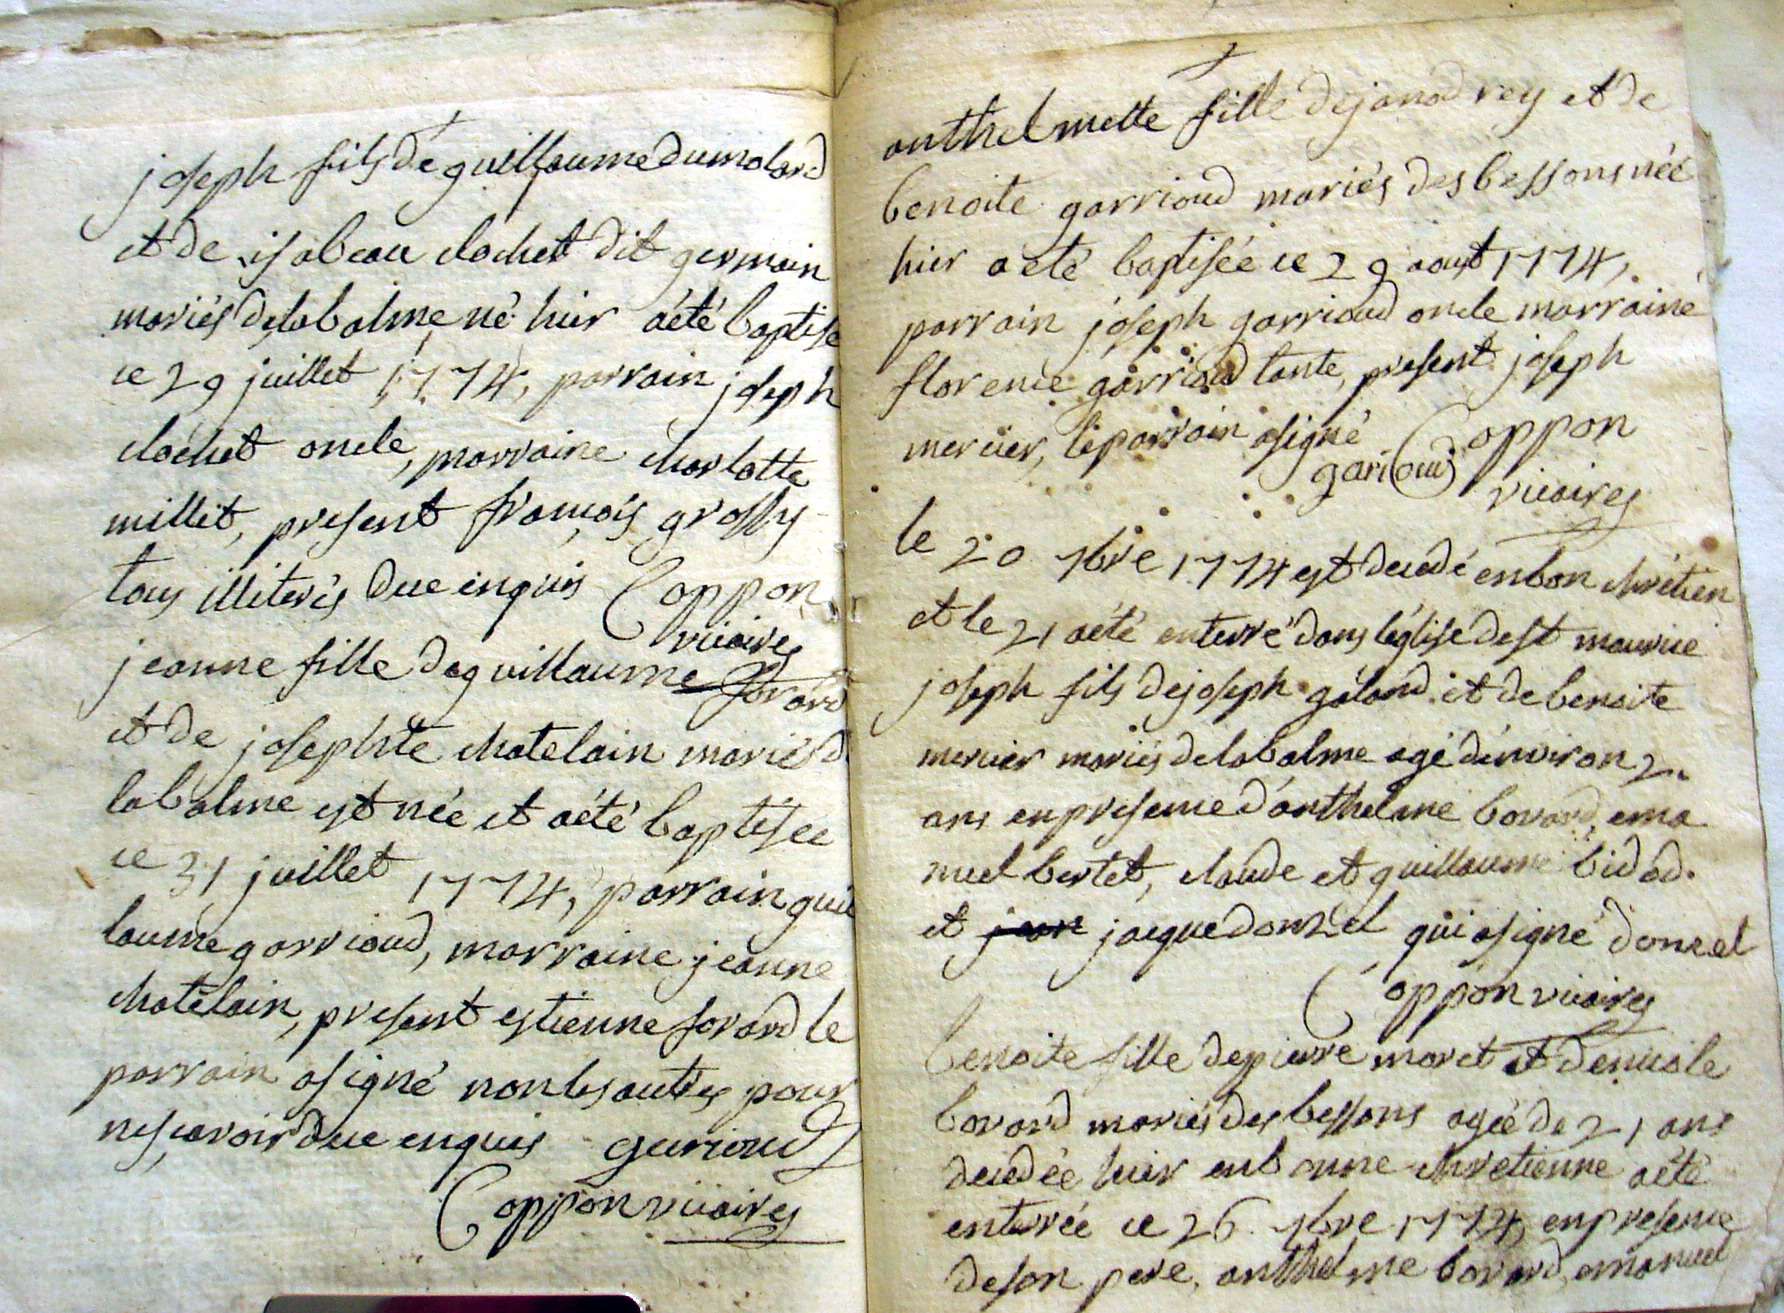 joseph fils de guillaume dumolard
et de isabeau clochet dit germain
mariés de labalme né hier a été baptisé
ce 29 juillet 1774, parrain joseph
clochet oncle, marraine charlotte
millet, present françois grossy
tous illiterés due enquis Coppon
vicaires
jeanne fille de guillaume favard
et de josephte chatelain mariés d
labalme est née et a été baptisée
ce 31 juillet 1774, parrain guil
laume garrioud, marraine jeanne
chatelain, present estienne favard le
parrain a signé non les autres pour
ne sçavoir due enquis gurioud
Coppon vicaires
anthelmette fille de janod rey et de
benoite garrioud mariés des bessons née
hier a été baptisée ce 29 aoust 1774,
parrain joseph garrioud oncle marraine
florence garrioud tante, present joseph
mercier, le parrain a signé Coppon
garioud vicaires
le 20 7bre 1774 est decedé en bon chrétien
et le 21 a été enterré dans l'église de st maurice
joseph fils de joseph galand et de benoite
mercier mariés de labalme agé d'environ 2
ans en presence d'anthelme bovard, ema
nuel bertet, claude et guillaume bidod.
et jean jacque donzel qui a signé donzel
Coppon vicaires
benoite fille de pierre moret et de nicole
bovard mariés des bessons agée de 21 ans
decedée hier en bonne chretienne a été
enterrée ce 26 7bre 1774, en presence
de son pere, anthelme bovard, emanuel